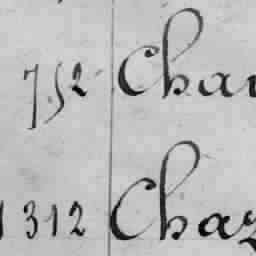 752 Chau
1312 Chaz